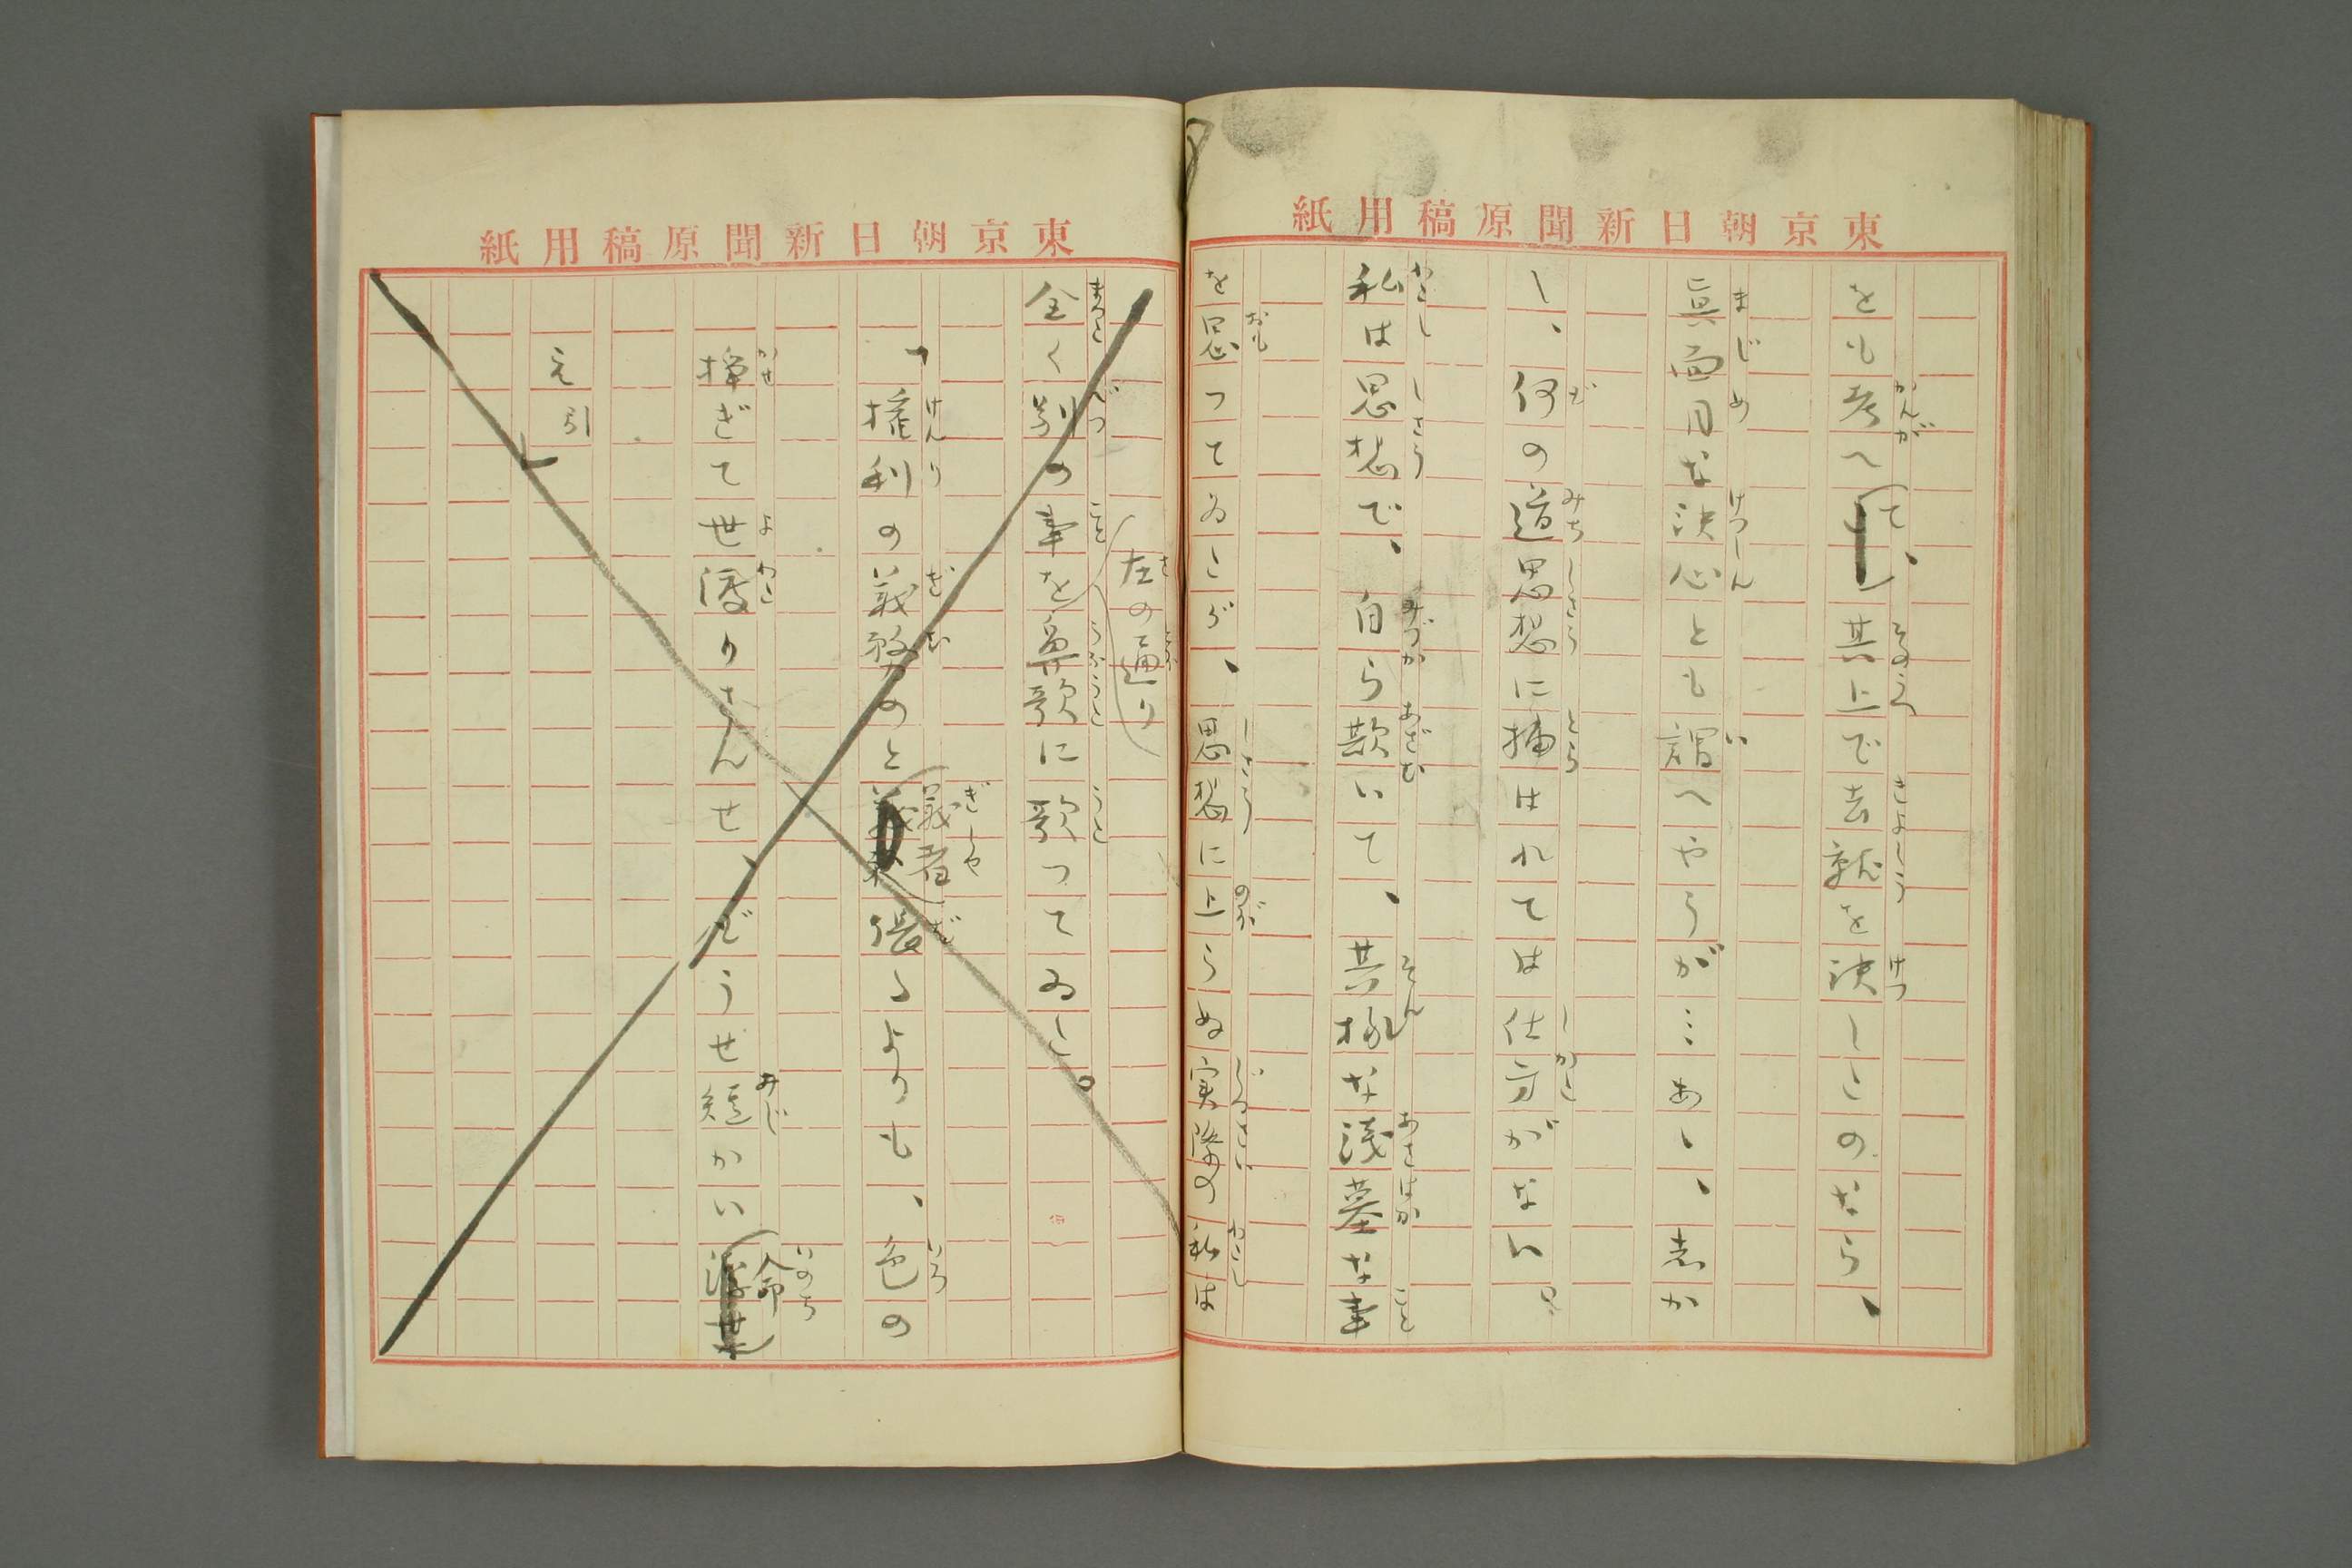 東京朝日新聞原稿用紙
をも考へて、其上で去就を決したのなら、
眞面目な決心とも謂へやうが…あゝ、志か
し、何の道思想に捕はれては仕方がない。
私は思想で、自ら欺いて、其様な浅墓な事
を思つてゐたが、思想に上らぬ実際の私は
東京朝日新聞原稿用紙
左の通り
全く別の事を鼻歌に歌つてゐた。
「権利の義務のと義者張るよりも、色の
挊ぎて世渡りさんせ、どうせ短かい命
え引」